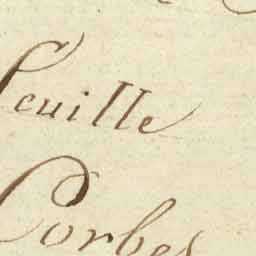 feuille
Corbes